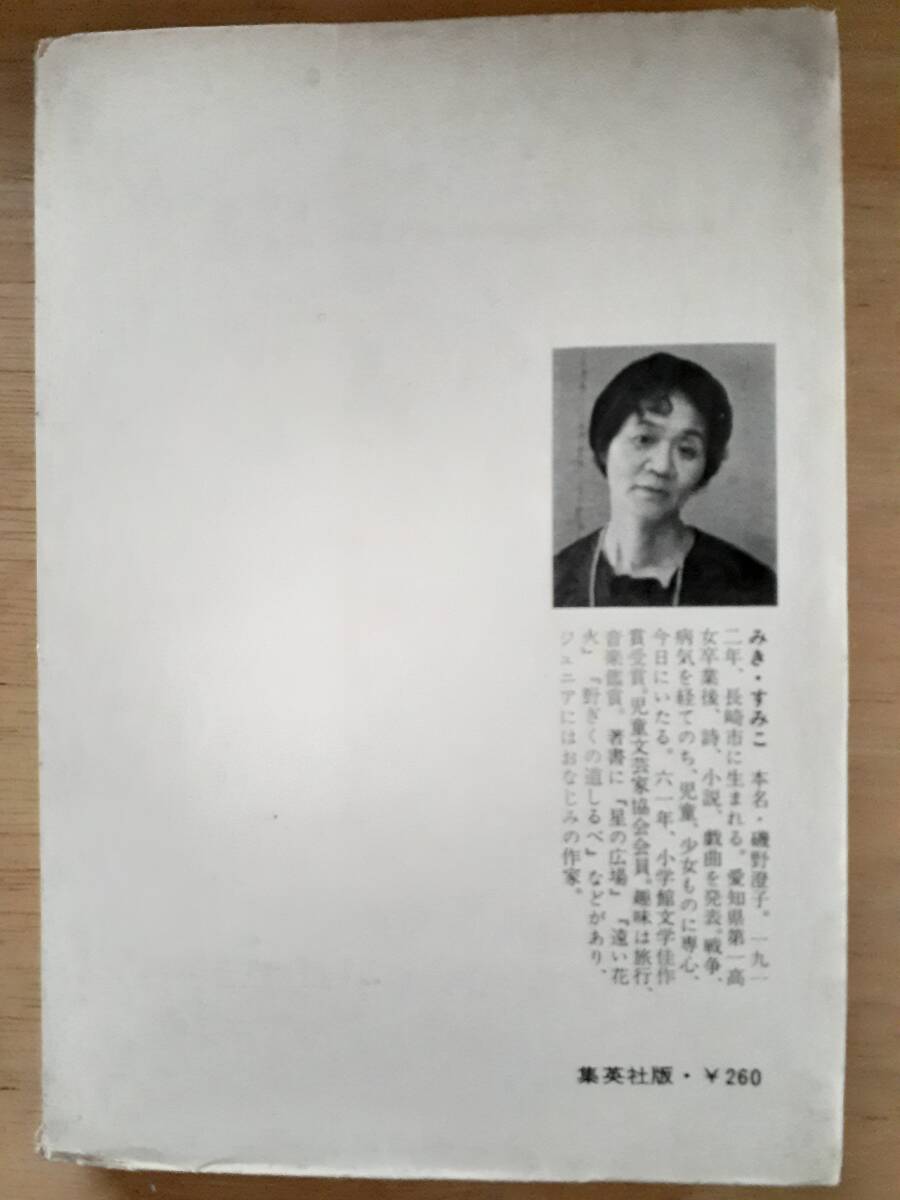 みき・すみこ　本名・磯野澄子。一九一
二年、長崎市に生まれる。愛知県第一高
女卒業後、詩、小説、戯曲を発表。戦争、
病気を経てのち、児童、少女ものに専心、
今日にいたる。六一年、小学館文学佳作
賞受賞。児童文芸家協会会員。趣味は旅行、
音楽鑑賞。著書に『星の広場』『遠い花
火』『野ぎくの道しるべ』などがあり、
ジュニアにはおなじみの作家。
集英社版・￥260